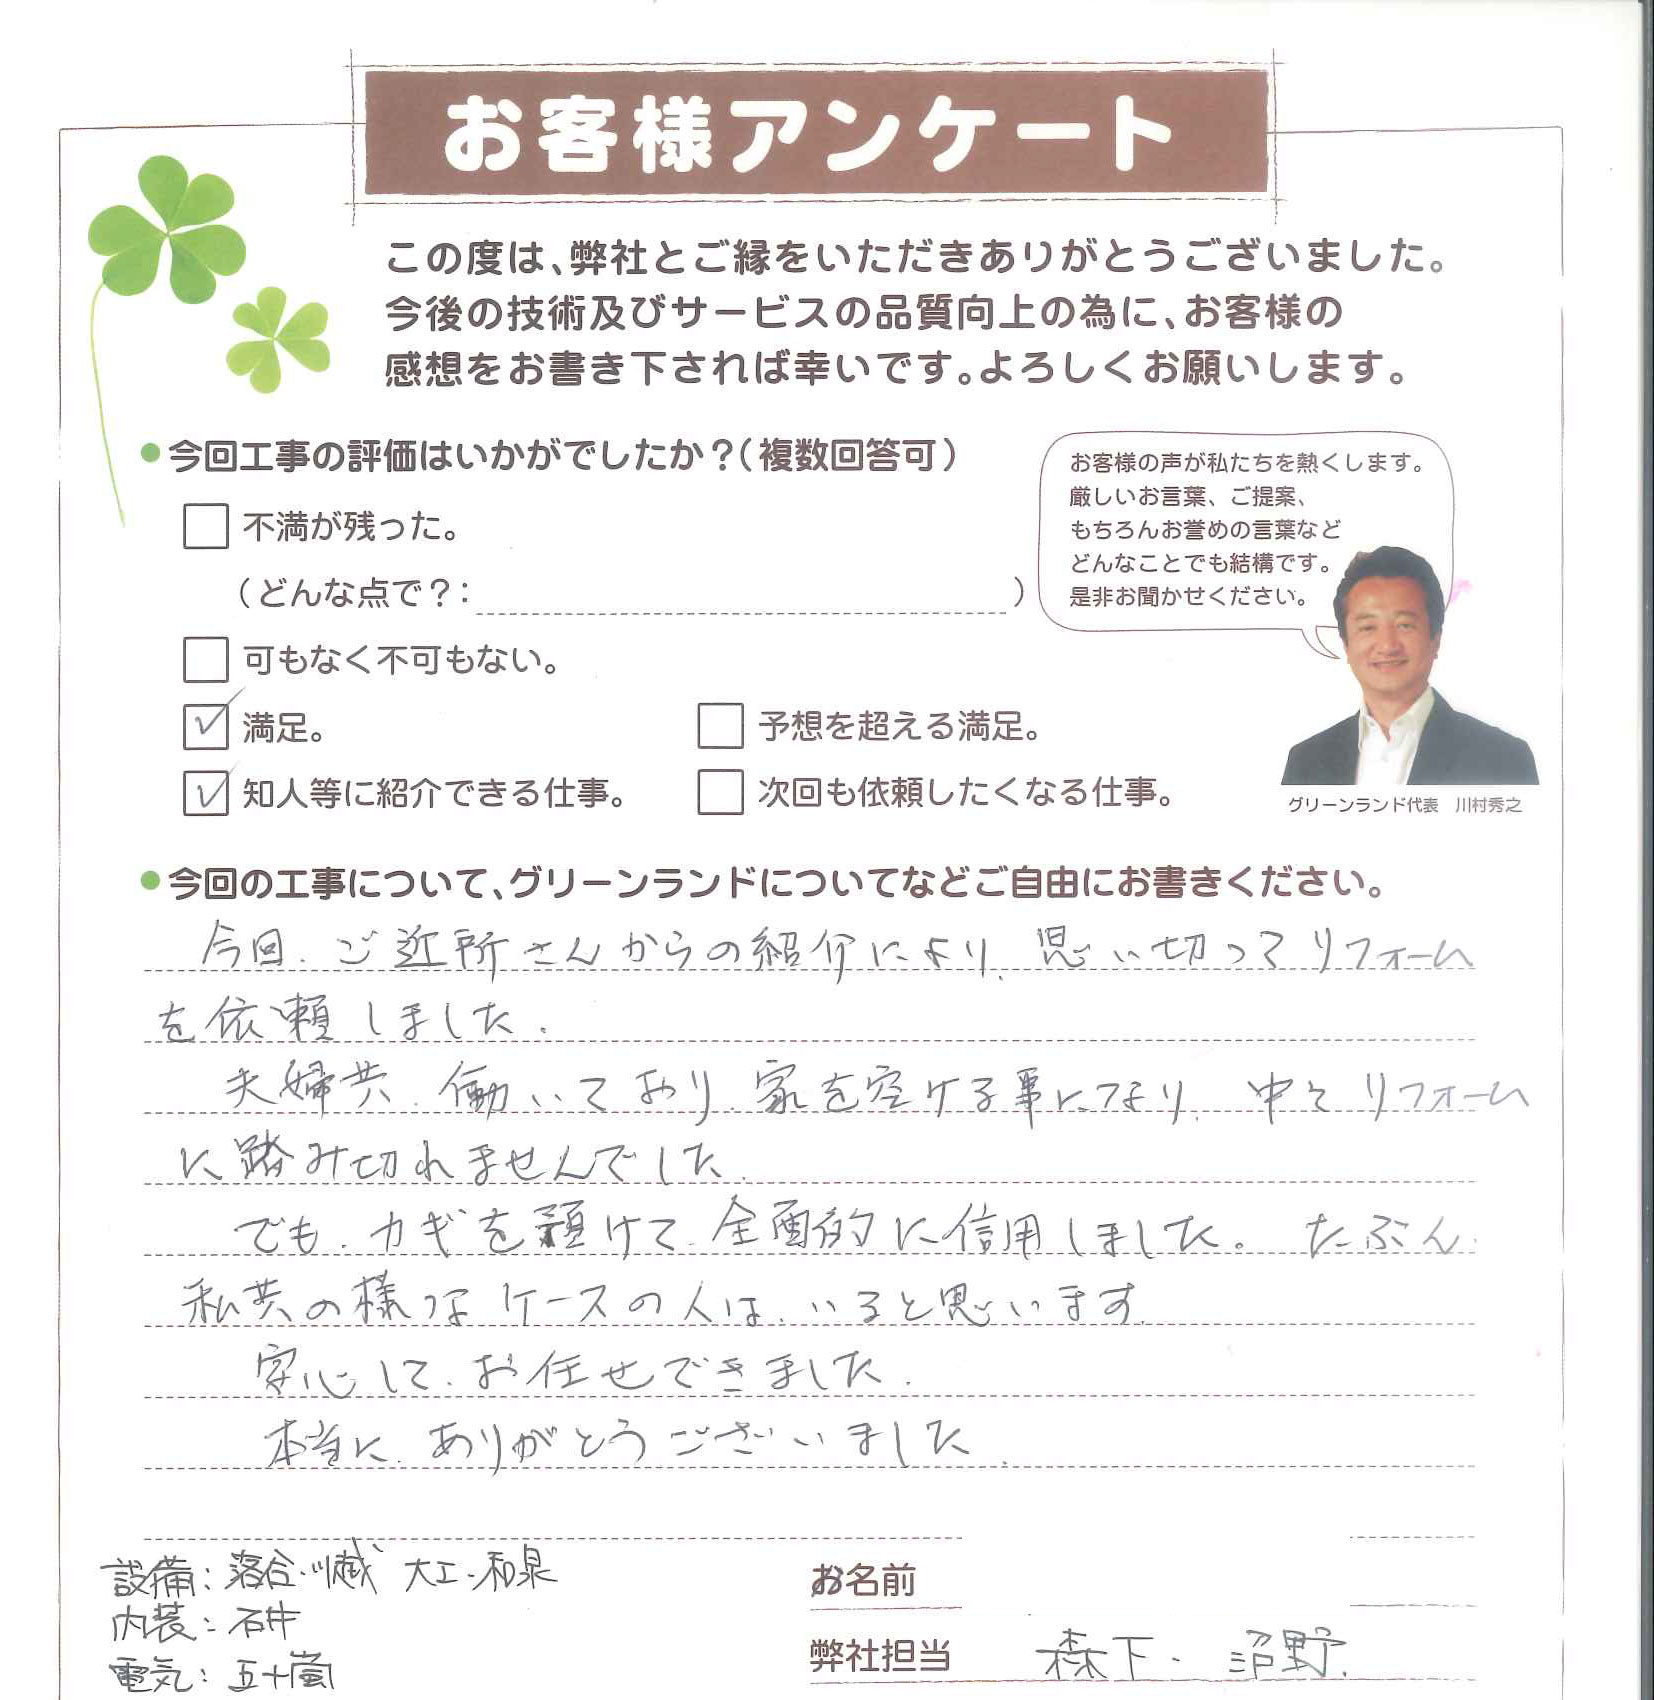 お客様アンケート
この度は、弊社とご縁をいただきありがとうございました。
今後の技術及びサービスの品質向上の為に、お客様の
感想をお書き下されば幸いです。よろしくお願いします。
●今回工事の評価はいかがでしたか？（複数回答可）
不満が残った。
（どんな点で？： ）
可もなく不可もない。
満足。
予想を超える満足。
知人等に紹介できる仕事。
次回も依頼したくなる仕事。
お客様の声が私たちを熱くします。
厳しいお言葉、ご提案、
もちろんお誉めの言葉など
どんなことでも結構です。
是非お聞かせください。
グリーンランド代表 川村秀之
●今回の工事について、グリーンランドについてなどご自由にお書きください。
今回、ご近所さんからの紹介により、思い切ってリフォーム
を依頼しました。
夫婦共、働いており、家を空ける事になり、中々リフォーム
に踏み切れませんでした
でも、カギを預けて、全面的に信用しました。たぶん、
私共の様なケースの人は、いると思います。
安心して、お任せできました。
本当に、ありがとうございました。
設備：落合・川越 大工・和泉
内装：石井
電気：五十嵐
お名前
弊社担当 森下・沼野